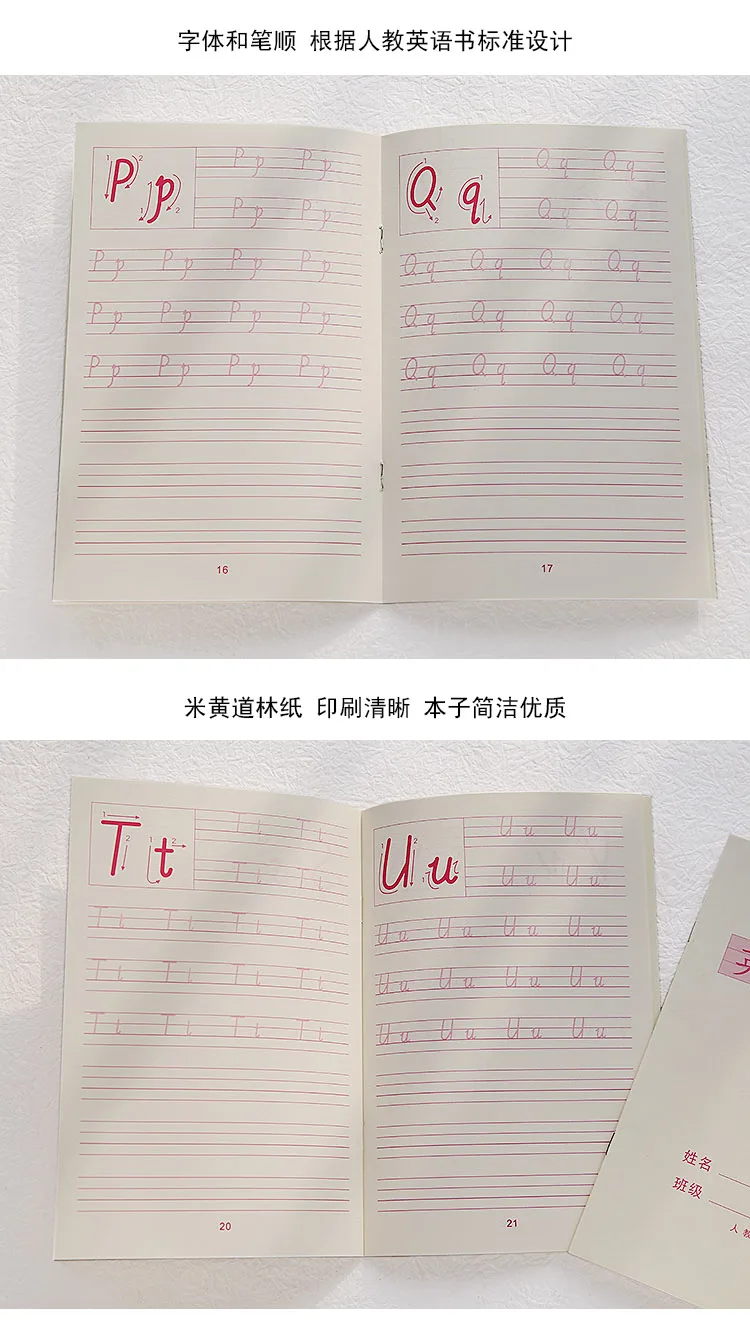 字体和笔顺 根据人教英语书标准设计
1 P 2 1 p 2
P p P p
P p P p
P p P p P p P p
P p P p P p P p
P p P p P p P p
16
1 Q 2 1 q
Q q Q q
Q q Q q
Q q Q q Q q Q q
Q q Q q Q q Q q
Q q Q q Q q Q q
17
米黄道林纸 印刷清晰 本子简洁优质
1 T 2 1 t 2
T t T t
T t T t
T t T t T t T t
T t T t T t T t
T t T t T t T t
20
1 U 2 1 u 2
U u U u
U u U u
U u U u U u U u
U u U u U u U u
U u U u U u U u
21
姓名
班级
人教